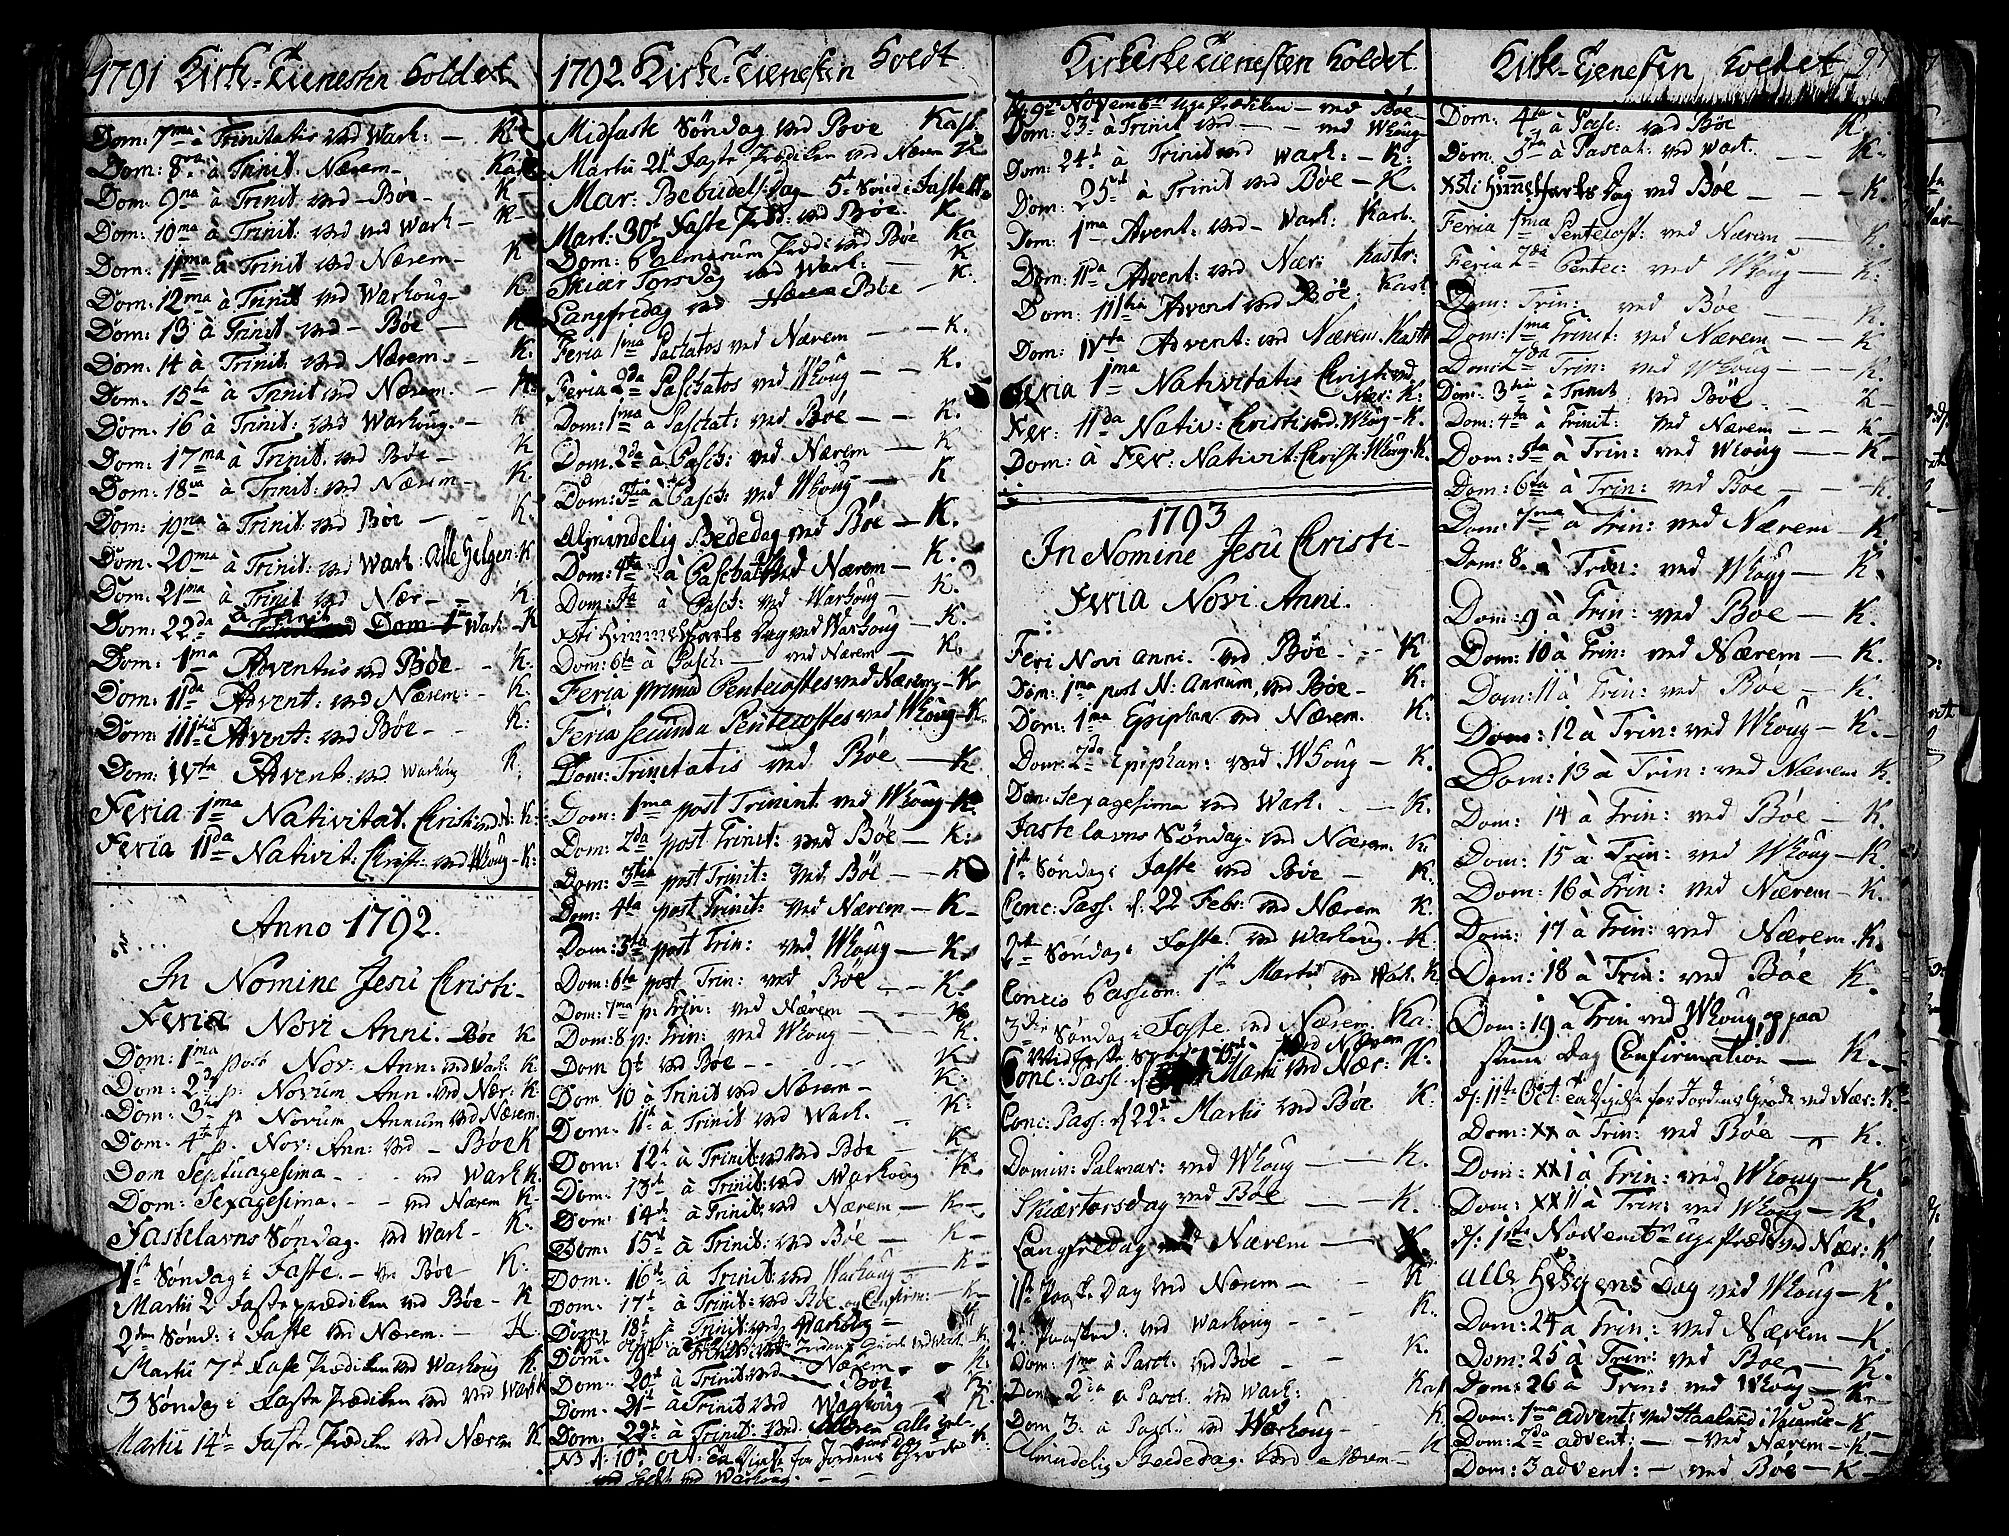 1791 Kirke-Tienesten holdet
Dom: 7ma à Trinitatis ved Warh: — K
Dom: 8va à Trinit. Nærem —
Dom: 9na à Trinit: ved — Bøe — K —
Dom: 10ma à Trinit: ved ved Warh — K —
Dom: 11ma à Trinit ved Nærem — K
Dom: 12ma à Trinit ved Warhoug — K
Dom: 13 à Trinit: ved — Bøe —
Dom. 14 à Trinit. ved Nærem — K.
Dom. 15ta à Trinit ved Nærem. — K.
Dom. 16 à Trinit: ved Warhoug. — K
Dom: 17ma à Trinit. ved Bøe — K
Dom: 18va à Trinit: ved Nærem — K.
Dom: 19na à Trinit. ved Bøe — — K
Dom. 20ma à Trinit: ved Warh: Alle Helgen: K
Dom: 21ma à Trinit ved Nær — K
Dom: 22da à Trinit Warh — K
Dom: 1ma Adventus ved Bøe — K.
Dom: 11da Advent: ved Nærem: — K.
Dom: 111tia Advent: ved Bøe — K:
Dom: 1Vta Advent: ved Warhoug K
Feria 1ma Nativitat. Christi ved N: K:
Feria 11da Nativit: Christ: ved Whoug — K:
Anno 1792.
In Nomine Jesu Christi —
Feria Novi Anni. Bøe K
Dom: 1ma post Nov: Ann: ved Warh: K.
Dom: 2da p: Novum Ann. ved Nær: K.
Dom: 3tia p Novum Annum ved Nærem.
Dom: 4ta p. Nov: Ann: ved — Bøe K
Dom Septuagesima - - - ved Warh K.
Dom: Sexagesima. - - ved Nærem K —
Fastelavns Søndag. ved Warh — K.
1ste Søndag i Faste. — ved Bøe — K.
Martii 2 Faste prædiken ved Bøe — K
2den Sønd: i Faste ved Nærem. — K.
Martii 7d Faste Prædiken ved Warhoug K.
3 Søndag i Faste Prædiken ved ved Warh K
Martii 14d Faste Prædiken ved Nærem K
1792. Kirke-Tienesten holdt
Midfaste Søndag ved Bøe Kast.
Martii 21d Faste Prædiken ved Nærem K
Mar: Bebudels: Dag — 5te Sønd i Faste
Mart: 30d Faste Præd: ved Bøe. K
Dom: Palmarum Præd: ved Bøe Ka
Skiær Torsdag ved Warh: — K
Langfredag ved Bøe — K.
Feria 1ma Paschatos ved Nærem — — K.
Feria 2da Paschatos ved Whoug — — K.
Dom: 1ma à Paschat: ved Bøe — — K.
Dom. 2da à Pasch: ved Nærem — K
Dom: 3tia à Pasch: ved Whoug — K
Almindelig Bededag ved Bøe — K.
Dom: 4ta à Paschat ved Nærem — K.
Dom: 5ta à Pasch: ved Warhoug — K.
Xsti Himmelfarts Dag ved Warhoug — K.
Dom: 6ta à Pasch. — ved Nærem — K.
Feria prima Pentecostes ved Nærem — K
Feria secunda Pentecostes ved Whoug — K.
Dom: Trinitatis ved Bøe — K
Dom: 1ma post Trinint. ved Whoug — K
Dom: 2da post Trinit: ved Bøe — K:
Dom: 3tia post Trinit: ved Bøe — — K
Dom: 4ta post Trinit: ved Nærem — K —
Dom: 5ta post Trin: ved. Whoug — K.
Dom: 6ta post Trin: ved Bøe — K.
Dom: 7ma p: Trin: ved Nærem — K
Dom: 8 p: Trin: ved Whoug K.
Dom 9d ved Bøe - - - K
Dom 10 à Trinit ved Nærem — K:
Dom: 11d à Trinit ved Warh. K:
Dom: 12d à Trinit: ved Bøe — K
Dom: 13d à Trinit: ved Warhoug K.
Dom: 14de à Trinit: ved Nærem — K —
Dom: 15d à Trinit: ved Bøe — K —
Dom: 16d à Trinit: ved Warhoug — K —
Dom: 17d à Trinit: ved Bøe og Confirm: — K —
Dom: 18d à Trinit: ved Warhoug —
Dom: 19d à Trinit: ved Nærem — K.
Dom: 20d à Trinit ved — Bøe K.
Dom: 21d à Trinit ved Warhoug — K.
Dom: 22d à Trinit: ved Alle Hel-
NB d: 10d Oct: Taksigelse for Jordens Grøde K.
Kirketienesten holdet
9de Novembr Uge Prædiken — ved Bøe —
Dom: 23d à Trinit ved — — ved Whoug
Dom: 24d à Trinit ved Warh: — K:
Dom: 25d à Trinit ved Bøe — K.
Dom: 1ma Advent: ved — Warh: Kast.
Dom: 11da Advent: ved Nær: Kastr.
Dom: 111tia Advent ved Bøe, Kast
Dom: 1Vta Advent: ved Nærem Kastr
Feria 1ma Nativitatis Christi ved
Nær: K:
Fer: 11da Nativ: Christi ved. Whoug — K.
Dom: à Fer: Nativit: Christ: Whoug. K.
1793
In Nomine Jesu Christi —
Feria Novi Anni.
Feri Novi Anni. ved Bøe — - K
Dom: 1ma post N: Annum, ved Bøe — K.
Dom: 1ma Epiphan ved Nærem. K:
Dom: 2da Epiphan: ved. Whoug — K.
Dom: Sexagesima ved Warh. — K.
Fastelavns Søndag. ved Nærem. K.
1ste Søndag i Faste ved Bøe — K.
Conc: Pass. d: 22 Febr: ved Nærem K.
2den Søndag i Faste. ved Warhoug. — K.
Concio Passion: 1ste Martii ved Warh. K
3die Søndag i Faste. ved Nærem. Ka:
Conc: Pass. d Martii ved Nær: K:
Conc: Pass: d 22d Martii ved Bøe K:
Domin: Palmar: ved Whoug — — K.
Skiærtorsdag ved Bøe — K.
Langfredag ved Nærem —
1ste Paaske Dag ved Nærem — - K
2den Paasked: ved Warhoug - - - K.
Dom: 1ma à Pasc: ved Bøe - - K.
Dom 2da à Pasc. ved Warh: Kast
Dom 3. à Pasc: ved Warhoug — K.
Almindelig Beededag. ved Nærem — K
Kirke-Tjenesten holdet 97
Dom: 4ta à Pasc: ved Bøe K.
Dom. 5ta à Pascat: ved Warh. — — K.
Xsti Himmelfarts Dag ved Bøe — — K.
Feria 1ma Pentecost: ved Nærem — K.
Feria 2da Pentec: ved Whoug — K:
Dom: Trin: ved Bøe — K.
Dom: 1ma Trinit: ved Nærem — K
Dom: 2da Trin: ved Whoug — — K.
Dom: 3tia à Trinit ved Bøe. — K —
Dom: 4ta à Trinit: ved Nærem — — K
Dom: 5ta à Trin: ved Whoug — — K —
Dom: 6ta à Trin: ved Bøe — — K.
Dom: 7ma à Trin: ved Nærem — K.
Dom: 8 à Trin: ved Whoug — K.
Dom: 9 à Trin: ved Bøe — K.
Dom: 10 à Trin: ved Nærem — K.
Dom: 11 à Trin: ved Bøe — K.
Dom: 12 à Trin: ved Whoug — K. —
Dom: 13 à Trin: ved Nærem K.
Dom: 14 à Trin: ved Bøe — K.
Dom: 15 à Trin: ved Whoug — K.
Dom: 16 à Trin: ved Nærem — K.
Dom: 17 à Trin: ved Nærem. K.
Dom: 18 à Trin: ved Bøe K.
Dom: 19 à Trin ved Whoug, og paa
samme Dag Confirmation — K. —
d: 11te Oct: Taksigelse for Jordens Grøde ved Nær: K.
Dom: XX à Trin: ved Bøe — K.
Dom: XX1 à Trin: ved Whoug — K
Dom: XX11 à Trin: ved Whoug — K.
d: 1ste Novembr Uge Præd: ved Nær: K
Alle Helgens Dag ved Whoug — K.
Dom: 24 à Trin: ved Nærem — K
Dom: 25 à Trin: ved Bøe — K.
Dom: 26 à Trin: ved Whoug — K —
Dom: 1ma Advent: ved Haaland i — K —
Dom: 2da advent: — — ved Nærem — K —
Dom: 3 advent: — ved Bøe — K —